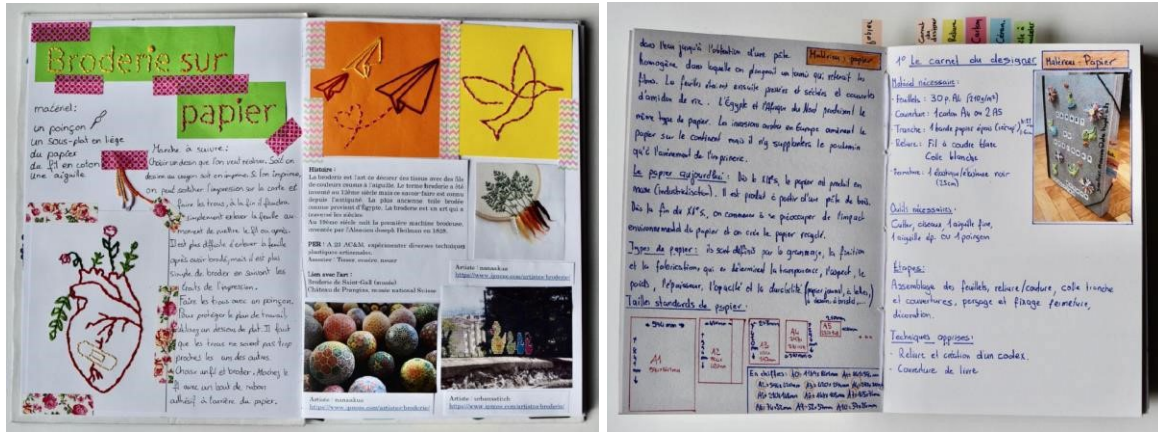 Broderie sur
papier
matériel:
un poinçon
un sous-plat en liège
du papier
du fil en coton
une aiguille
Marche à suivre:
Choisir un dessin que l'on veut réaliser. Soit on
dessine au crayon soit on imprime. Si l'on imprime,
on peut scotcher l'impression sur la carte et
faire les trous, à la fin il faudra
simplement enlever la feuille au
moment de mettre le fil ou après.
Il est plus difficile d'enlever la feuille
après avoir brodé, mais il est plus
simple de broder en suivant les
traits de l'impression.
Faire les trous avec un poinçon.
Pour protéger le plan de travail,
utiliser un dessous de plat. Il faut
que les trous ne soient pas trop
proches les uns des autres.
Choisir un fil et broder. Attachez le
fil avec un bout de ruban
adhésif à l'arrière du papier.
Histoire :
La broderie est l'art de décorer des tissus avec des fils
de couleurs cousus à l'aiguille. Le terme broderie a été
inventé au 12ème siècle mais ce savoir-faire est connu
depuis l'antiquité. La plus ancienne toile brodée
connue provient d'Égypte. La broderie est un art qui a
traversé les siècles.
Au 19ème siècle naît la première machine brodeuse,
inventée par l'Alsacien Joseph Heilman en 1828.
PER : A 23 AC&M, expérimenter diverses techniques
plastiques artisanales.
Lien avec l'art :
broderie de Saint-Gall (musée)
Château de Prangins, musée national Suisse
Artiste : nanaakua
https://www.ignant.com/artistes/broderie/
Artiste : nanaakua
Artiste : urbanstitch
dans l'eau jusqu'à l'obtention d'une pâte
homogène dans laquelle on plongeait un tamis qui retenait les
fibres. La feuille étaient ensuite pressées et séchées et couvertes
d'amidon de riz. L'Égypte et l'Afrique du Nord produisent le
même type de papier. Les invasions arabes en Europe amènent le
papier sur le continent mais il n'y supplantera le parchemin
qu'à l'avènement de l'imprimerie.
Matériau : papier
Le papier aujourd'hui : Dès le XIXe s, le papier est produit en
masse (industrialisation). Il est produit à partir d'une pâte de bois.
Dès la fin du XXe s, on commence à se préoccuper de l'impact
environnemental du papier et on crée le papier recyclé.
Types de papier : ils sont définis par le grammage, la finition
et la fabrication, qui en déterminent la transparence, l'aspect, le
poids, l'épaisseur, l'opacité et la durabilité (papier journal, à lettres,
à dessin, à bricol...
Tailles standards de papier :
A1
A3
A4
A5
...
En chiffres :
Carnet
du
designer
Reliure
Carton
1° Le carnet du designer
Matériau - Papier
Matériel nécessaire :
- Feuillets : 30 p. A4 (210g/m²)
- Couverture : 1 carton A4 ou 2 A5
- Tranche : 1 bande papier épais
- Reliure : Fil à coudre blanc
Colle blanche
- Fermeture : 1 élastique/élastomère noir
(25cm)
Outils nécessaires :
Cutter, ciseaux, 1 aiguille fine,
1 aiguille ép. ou 1 poinçon
Étapes :
Assemblage des feuillets, reliure/couture, colle tranche
et couvertures, perçage et fixage fermeture,
décoration.
Techniques apprises :
- Reliure et création d'un codex.
- Couverture de livre